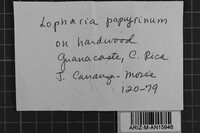 Lopharia papyrinum
on hardwood
Guanacaste, C. Rica
J. Carranza-Morse
120-79
ARIZ-M-AN15946